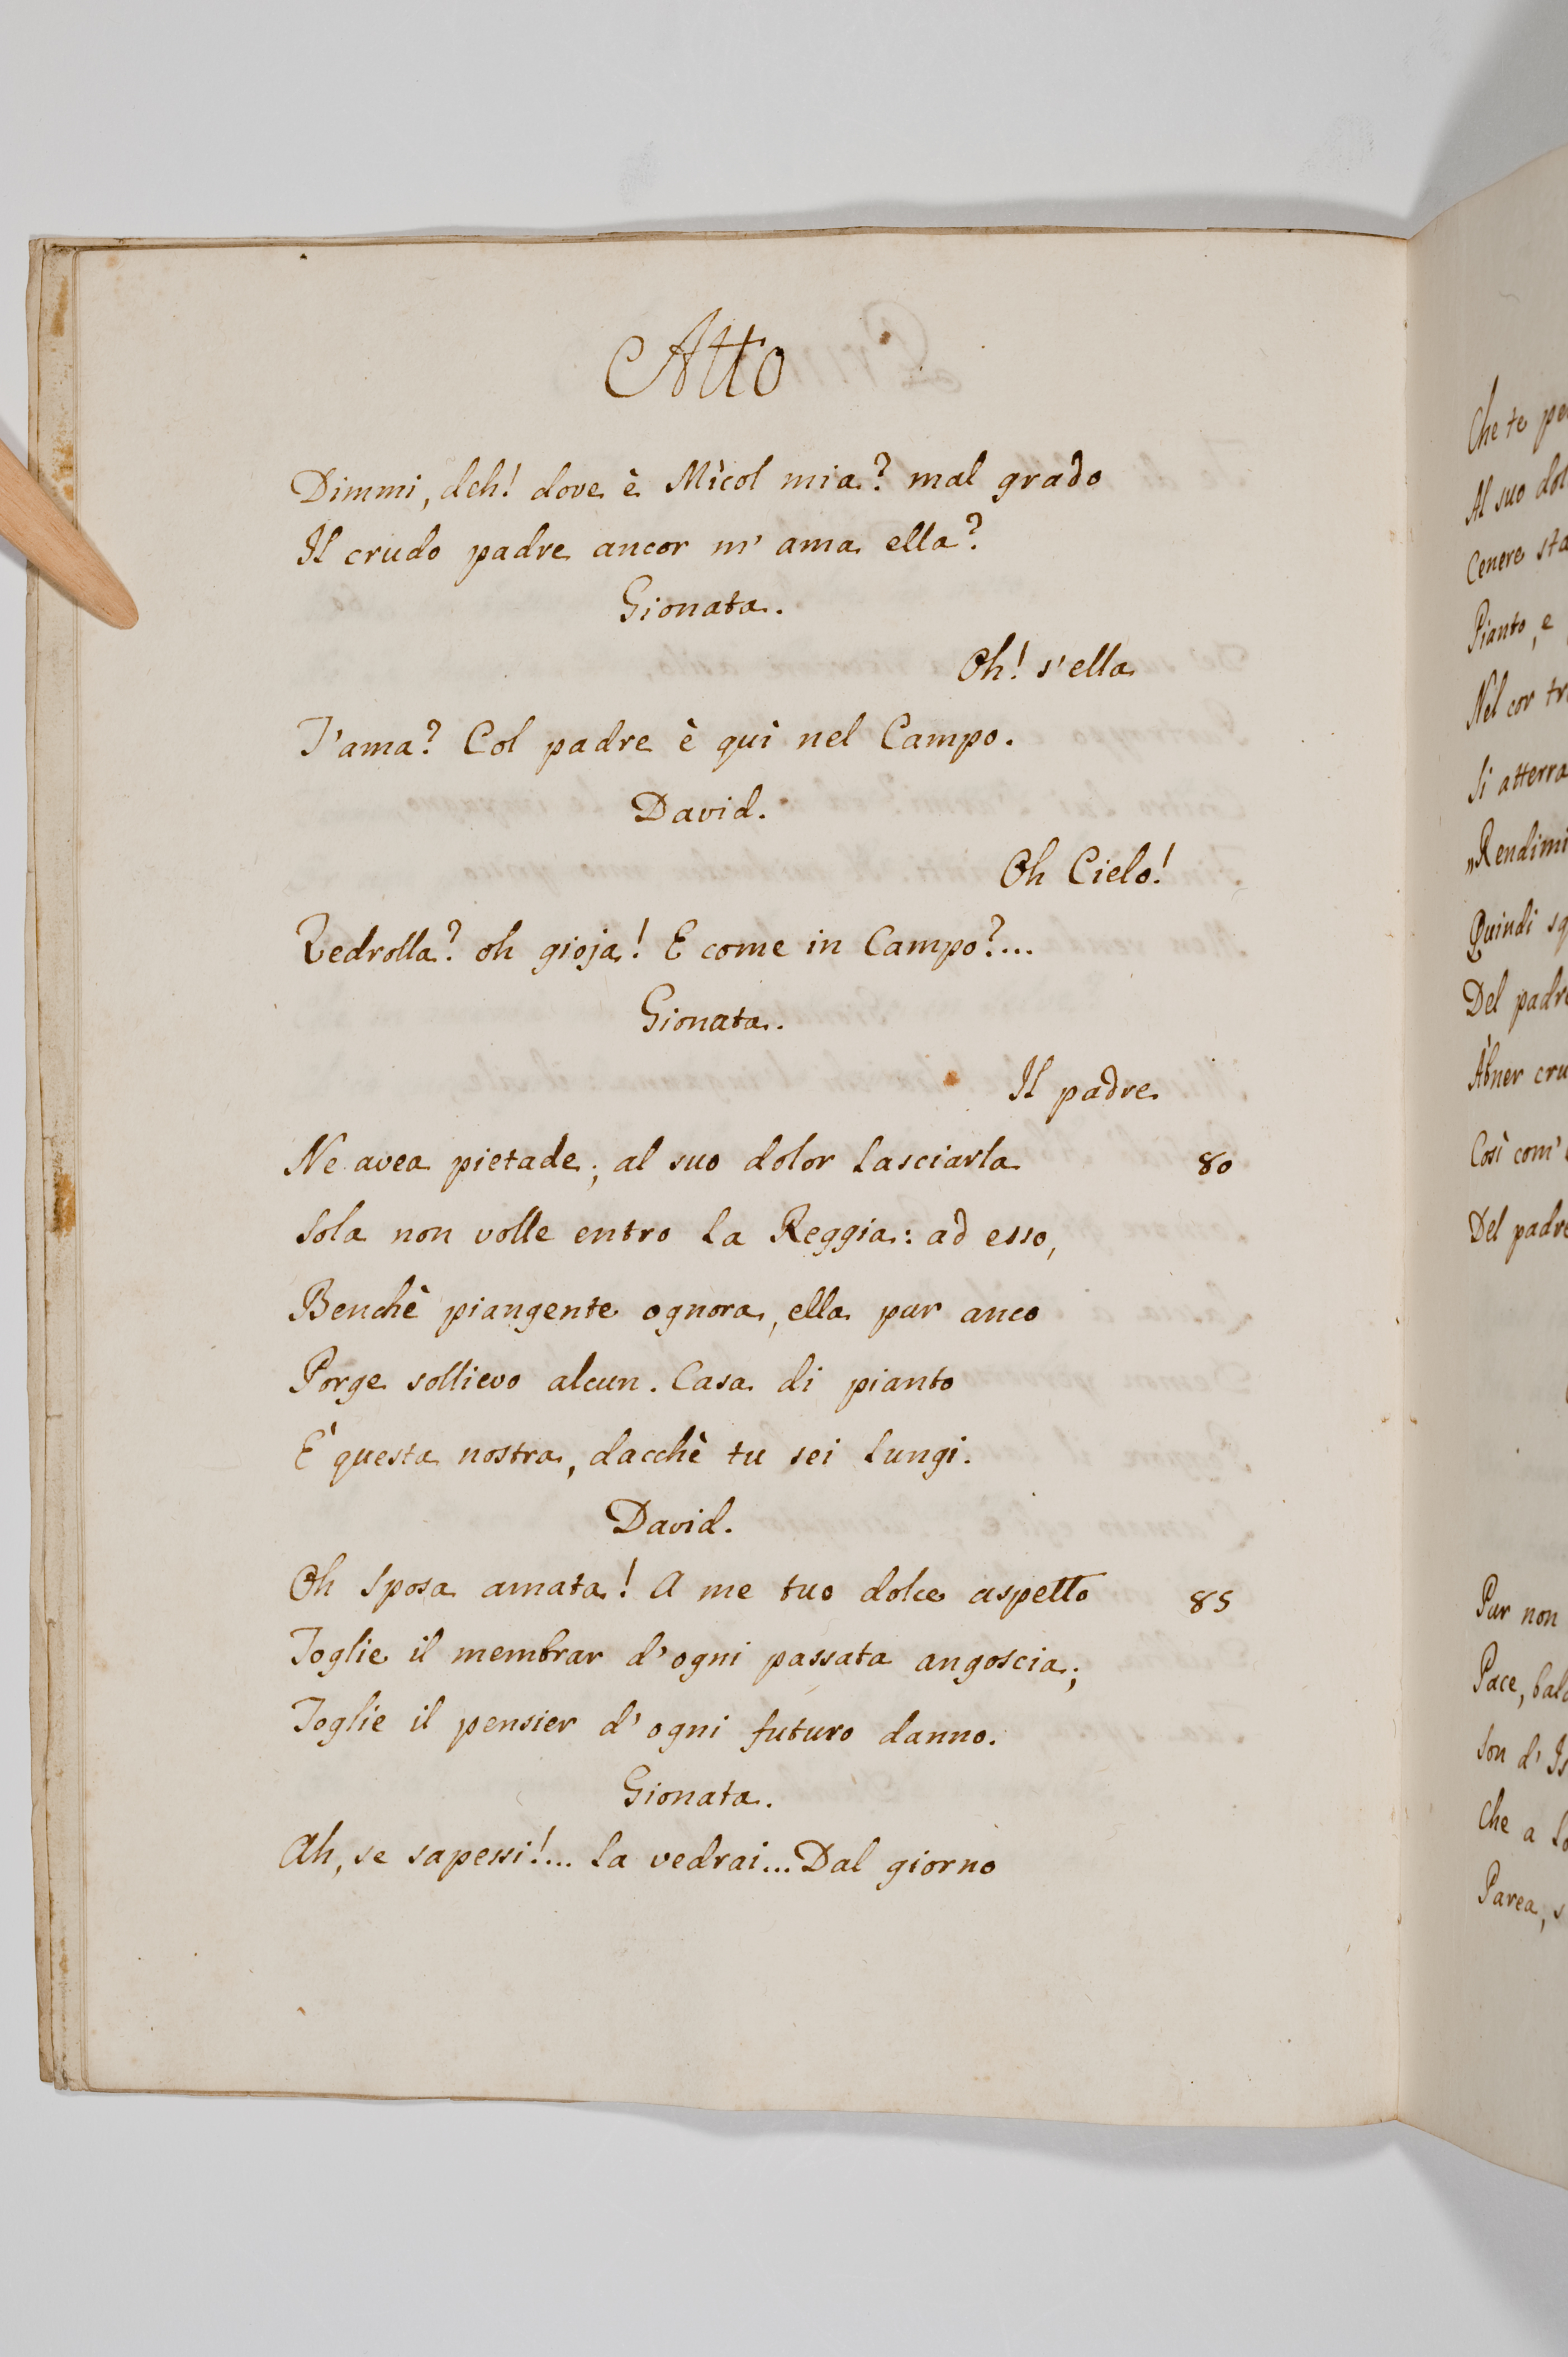 Atto
Dimmi, deh! dove è Mìcol mia? mal grado
Il crudo padre ancor m' ama ella?
Gionata.
Oh! s'ella
T'ama? Col padre è quì nel Campo.
David.
Oh Cielo!
Vedrolla? oh gioja! E come in Campo?...
Gionata.
Il padre
Ne avea pietade; al suo dolor lasciarla 80
Sola non volle entro la Reggia: ad esso,
Benchè piangente ognora, ella pur anco
Porge sollievo alcun. Casa di pianto
E' questa nostra, dacchè tu sei lungi.
David.
Oh sposa amata! A me tuo dolce aspetto 85
Toglie il membrar d'ogni passata angoscia;
Toglie il pensier d'ogni futuro danno.
Gionata.
Ah, se sapessi!... la vedrai... Dal giorno
Che te
Al suo
Cenere
Pianto, e
Nel cor
Si atterra
„Rendimi
Quindi
Del padre
Àbner
Così com'
Del padre
Pur non
Pace,
Son d'
Che a
Parea,